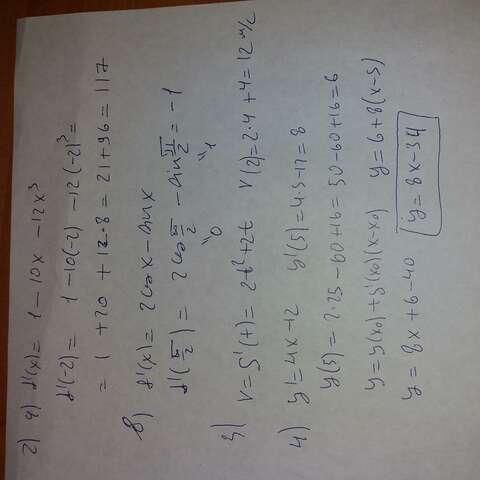 2) a) f'(x) = 1 - 10x - 12x³
f'(-2) = 1 - 10(-2) - 12(-2)³ =
= 1 + 20 + 12·8 = 21 + 96 = 117
в) f'(x) = 2cosx - sinx
f'(π/2) = 2cos π/2 - sin π/2 = -1
"0 "1
3) V = S'(t) = 2t² + 2t V(2) = 2·4 + 4 = 12 м/с
4) y' = 4x - 12 y'(5) = 4·5 - 12 = 8
y(5) = 2·25 - 60 + 16 = 50 - 60 + 16 = 6
y = y(x₀) + y'(x₀)(x - x₀) y = 6 + 8(x - 5)
y = 8x + 6 - 40 y = 8x - 34